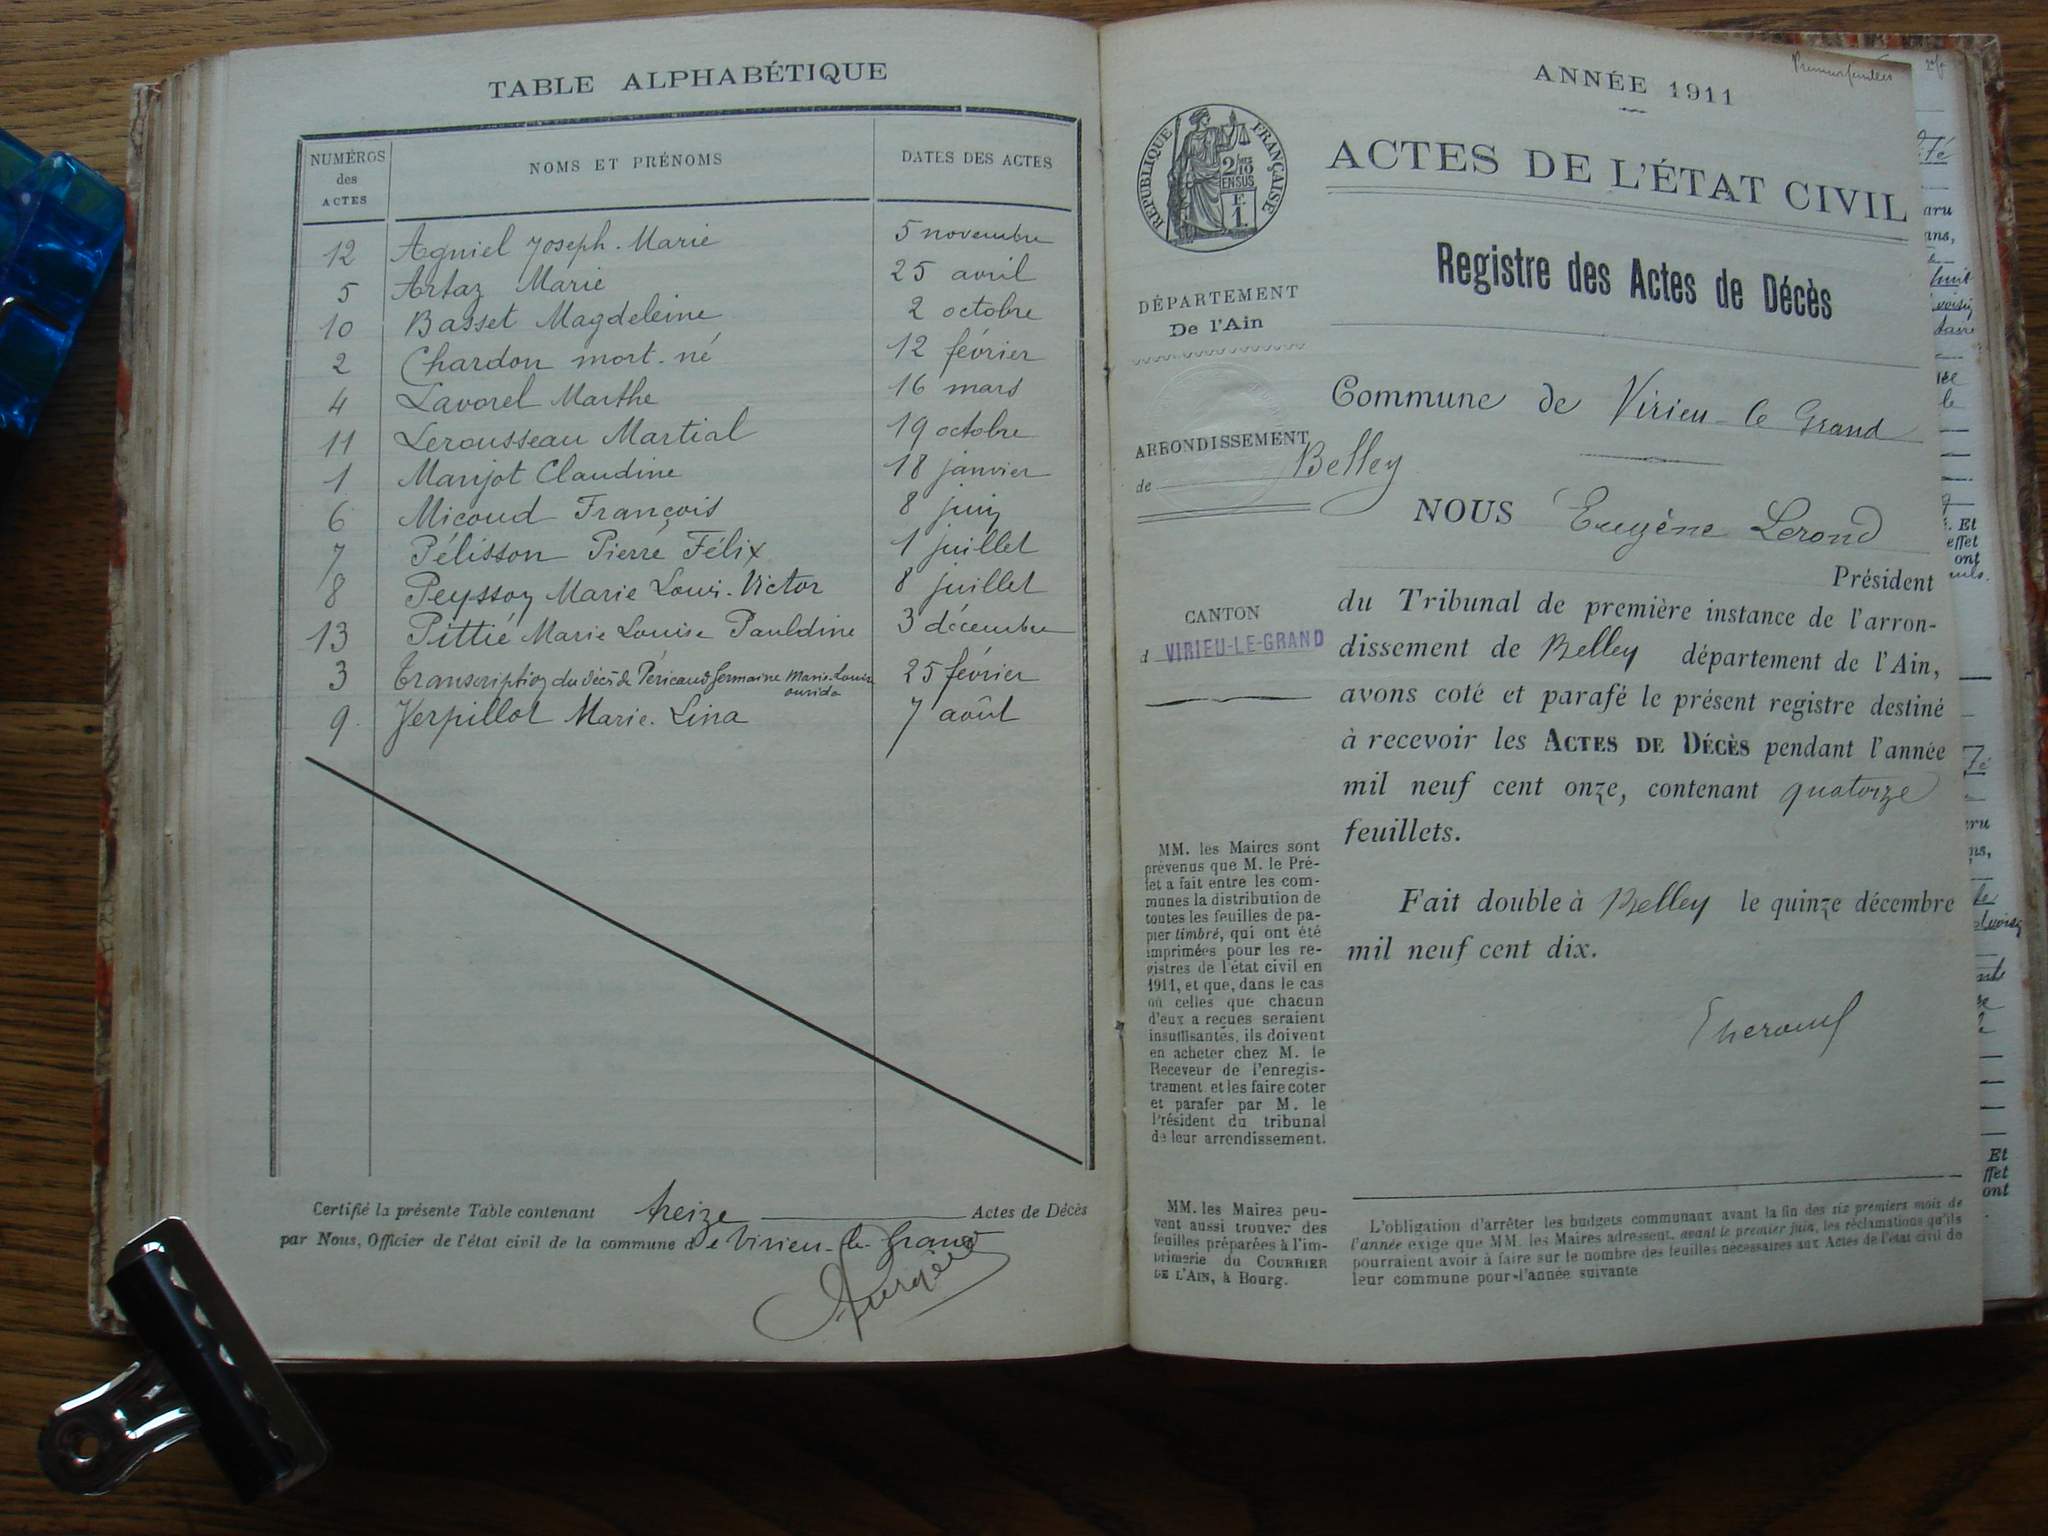 TABLE ALPHABÉTIQUE
NUMÉROS des ACTES
NOMS ET PRÉNOMS
DATES DES ACTES
12 Agniel Joseph-Marie 5 novembre
5 Artaz Marie 25 avril
10 Basset Magdeleine 2 octobre
2 Chardon mort-né 12 février
4 Lavorel Marthe 16 mars
11 Lerousseau Martial 19 octobre
1 Marijot Claudine 18 janvier
6 Micoud François 8 juin
7 Pélisson Pierre Félix 1 juillet
8 Peysson Marie Louis-Victor 8 juillet
13 Pittié Marie Louise Pauldine 3 décembre
3 Transcription du décès de Péricaud Germaine Marie-Louise 25 février
9 Verpillot Marie-Lina 7 août
Certifié la présente Table contenant treize Actes de Décès
par Nous, Officier de l'état civil de la commune de Virieu-le-Grand
ANNÉE 1911
RÉPUBLIQUE FRANÇAISE
2/10 EN SUS
F. 1.
ACTES DE L'ÉTAT CIVIL
Registre des Actes de Décès
DÉPARTEMENT
De l'Ain
ARRONDISSEMENT
de Belley
CANTON
d VIRIEU-LE-GRAND
Commune de Virieu-le Grand
NOUS Eugène Lerond
Président
du Tribunal de première instance de l'arron-
dissement de Belley département de l'Ain,
avons coté et parafé le présent registre destiné
à recevoir les ACTES DE DÉCÈS pendant l'année
mil neuf cent onze, contenant quatorze
feuillets.
Fait double à Belley le quinze décembre
mil neuf cent dix.
MM. les Maires sont
prévenus que M. le Pré-
fet a fait entre les com-
munes la distribution de
toutes les feuilles de pa-
pier timbré, qui ont été
imprimées pour les re-
gistres de l'état civil en
1911, et que, dans le cas
où celles que chacun
d'eux a reçues seraient
insuffisantes, ils doivent
en acheter chez M. le
Receveur de l'enregis-
trement et les faire coter
et parafer par M. le
Président du tribunal
de leur arrondissement.
MM. les Maires peu-
vent aussi trouver des
feuilles préparées à l'im-
primerie du COURRIER
DE L'AIN, à Bourg.
L'obligation d'arrêter les budgets communaux avant la fin des six premiers mois de
l'année exige que MM. les Maires adressent, avant le premier juin, les réclamations qu'ils
pourraient avoir à faire sur le nombre des feuilles nécessaires aux Actes de l'état civil de
leur commune pour l'année suivante